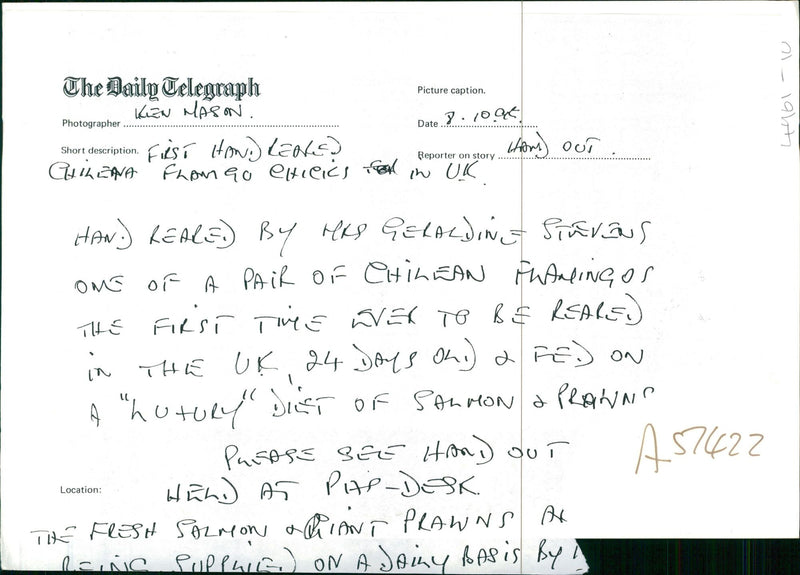 The Daily Telegraph
Picture caption.
Photographer KEN MASON.
Date 8. 10
Short description. FIRST HAND REARED
Reporter on story HAND OUT.
CHILEAN FLAMINGO CHICKS IN UK.
HAND REARED BY MRS GERALDINE STEVENS
ONE OF A PAIR OF CHILEAN FLAMINGOS
THE FIRST TIME EVER TO BE REARED
IN THE UK, 24 DAYS OLD & FED ON
A "LUXURY" DIET OF SALMON & PRAWNS
PLEASE SEE HAND OUT
A57422
Location: HELD AT DESK.
THE FRESH SALMON & GIANT PRAWNS
BEING SUPPLIED ON A DAILY BASIS BY